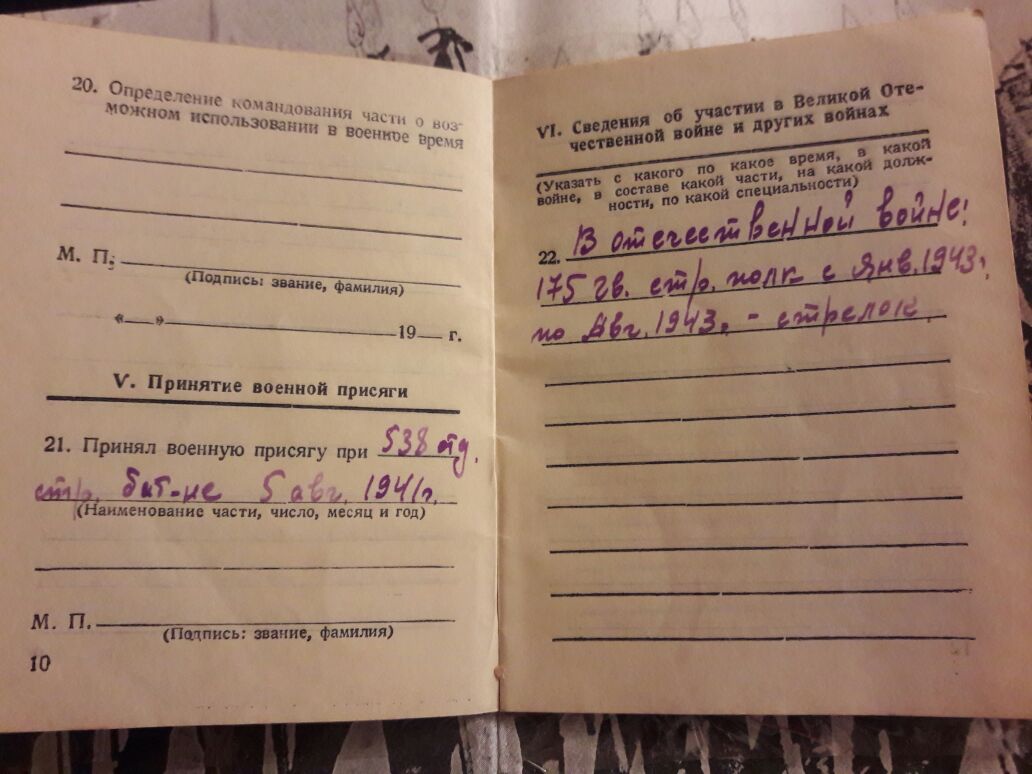 20. Определение командования части о воз-
можном использовании в военное время
М. П.
(Подпись: звание, фамилия)
«    »    19    г.
V. Принятие военной присяги
21. Принял военную присягу при 538 отд.
стр. бат-не 5 авг. 1941г.
(Наименование части, число, месяц и год)
М. П.
(Подпись: звание, фамилия)
10
VI. Сведения об участии в Великой Оте-
чественной войне и других войнах
(Указать с какого по какое время, в какой
войне, в составе какой части, на какой долж-
ности, по какой специальности)
22. В отечественной войне:
175 гв. стр. полк с янв. 1943г.
по Авг. 1943г. - стрелок.